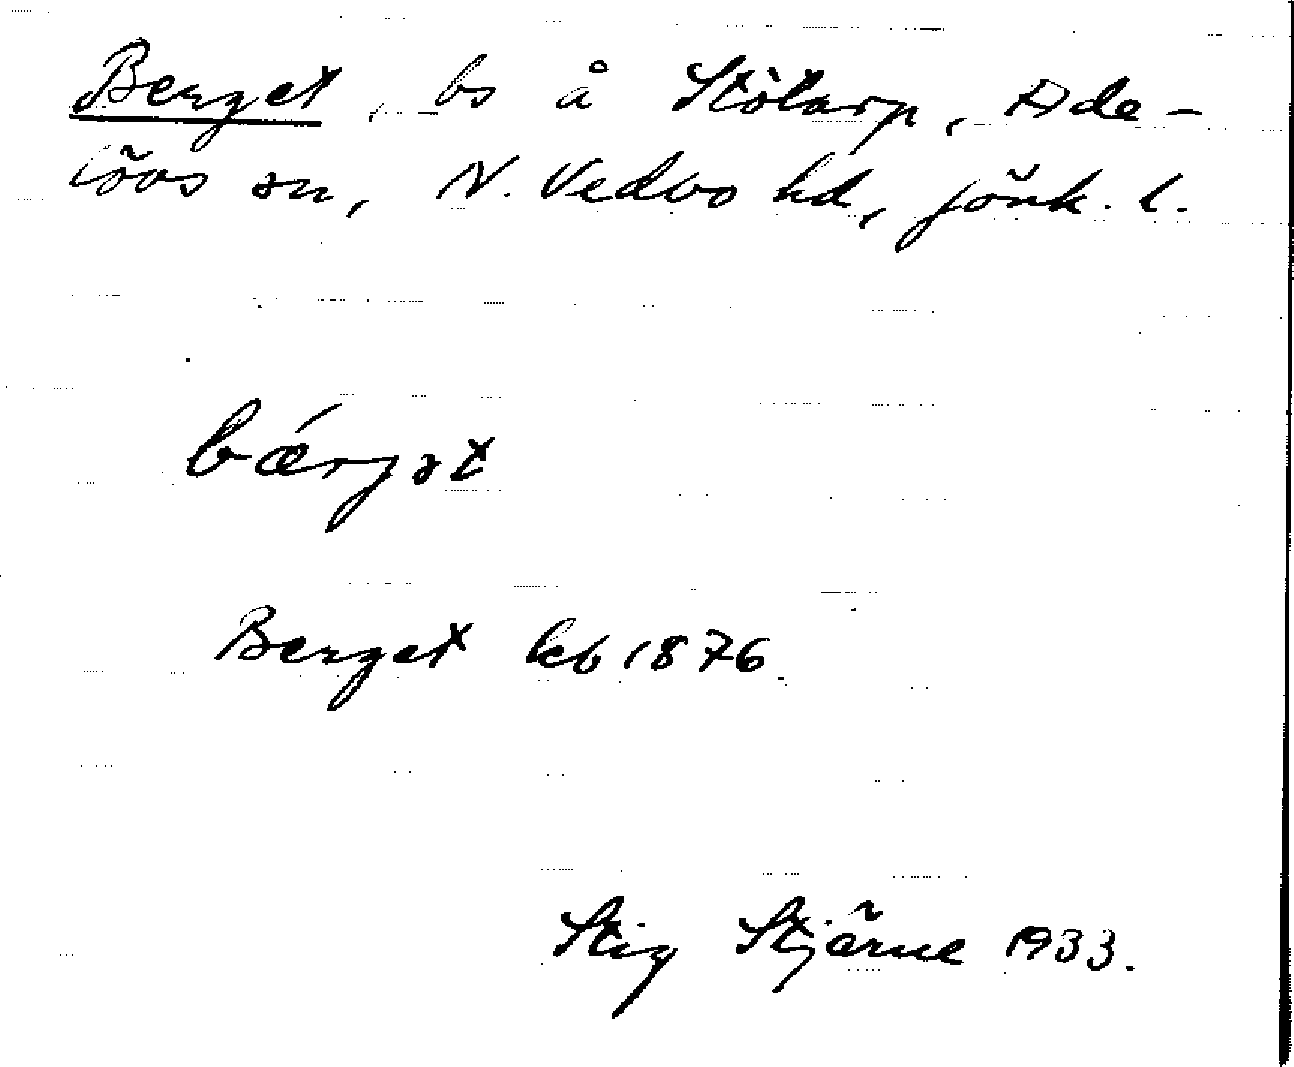 Berget, bs å Stötarp, Ade-
lövs sn, N. Vedbo hd, Jönk. l.
bǽrjət
Berget kb 1876
Stig Stjärne 1933.